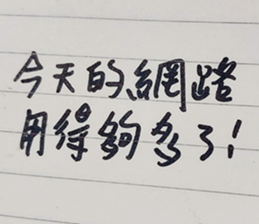 今天的網路
用得夠多了!